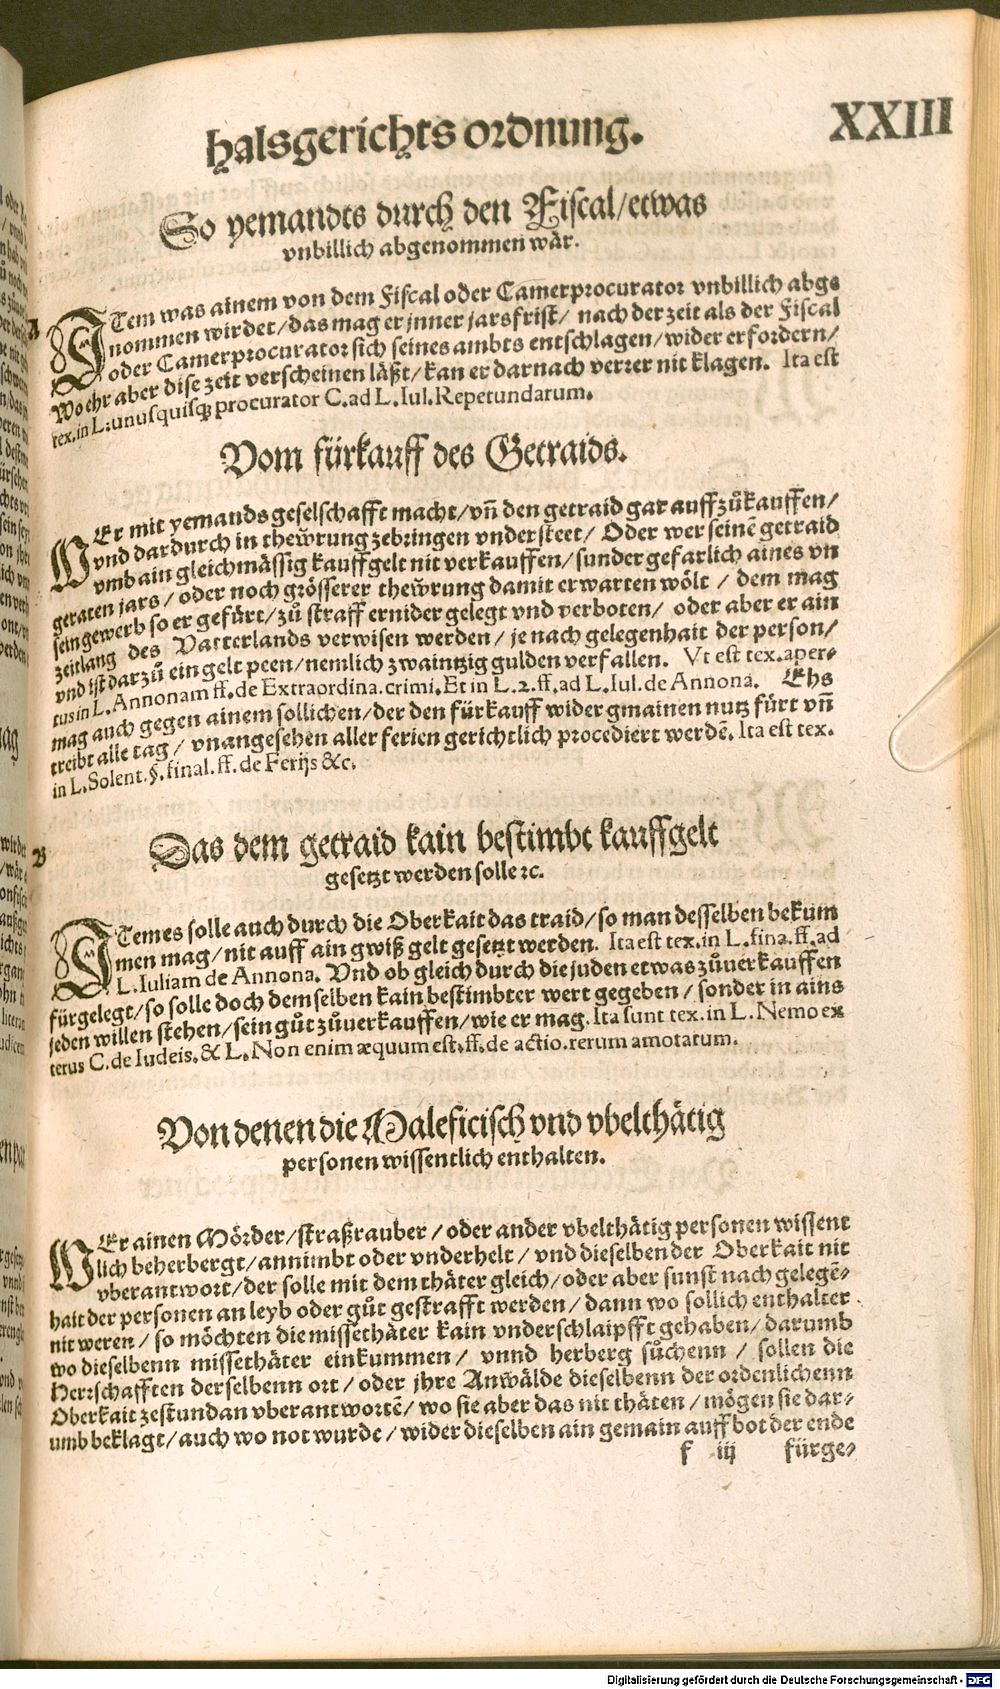 halsgerichts ordnung.
XXIII
So yemandts durch den Fiscal/etwas
vnbillich abgenommen wår.
A
ITem was ainem von dem Fiscal oder Camerprocurator vnbillich abge
nommen wirdet/das mag er jnner jarsfrist/ nach der zeit als der Fiscal
oder Camerprocurator sich seines ambts entschlagen/wider erfordern/
Wo ehr aber dise zeit verscheinen låßt/kan er darnach verrer nit klagen. Ita est
tex.in L:unusquisq; procurator C.ad L.Iul.Repetundarum.
Vom fürkauff des Getraids.
WEr mit yemands geselschafft macht/vñ den getraid gar auffzůkauffen/
vnd dardurch in thew̌rung zebringen vndersteet/ Oder wer seinē getraid
vmb ain gleichmåssig kauffgelt nit verkauffen/sunder gefarlich aines vn
geraten jars/oder noch grösserer thew̌rung damit erwarten wölt / dem mag
sein gewerb so er gefürt/zů straff ernider gelegt vnd verboten/ oder aber er ain
zeitlang des Vatterlands verwisen werden/je nach gelegenhait der person/
vnd ist darzů ein gelt peen/nemlich zwaintzig gulden verfallen. Vt est tex.aper-
tus in L.Annonam ff.de Extraordina.crimi.Et in L.2.ff.ad L.Iul.de Annona. Ehs
mag auch gegen ainem sollichen/der den fürkauff wider gmainen nutz fürt vñ
treibt alle tag/vnangesehen aller ferien gerichtlich procediert werdē. Ita est tex.
in L.Solent.§.final.ff.de Ferijs &c.
B
Das dem getraid kain bestimbt kauffgelt
gesetzt werden solle ꝛc.
ITem es solle auch durch die Oberkait das traid/so man desselben bekum
men mag/nit auff ain gwiß gelt gesetzt werden. Ita est tex.in L.fina.ff.ad
L.Iuliam de Annona. Vnd ob gleich durch die juden etwas zůuerkauffen
fürgelegt/so solle doch demselben kain bestimbter wert gegeben/sonder in ains
jeden willen stehen/sein gůt zůuerkauffen/wie er mag. Ita sunt tex.in L.Nemo ex
terus C.de Iudeis.& L.Non enim æquum est.ff.de actio.rerum amotarum.
Von denen die Maleficisch vnd vbelthåtig
personen wissentlich enthalten.
WEr ainen Mörder/straßrauber/oder ander vbelthåtig personen wissent
lich beherbergt/annimbt oder vnderhelt/vnd dieselben der Oberkait nit
vberantwort/der solle mit dem thåter gleich/oder aber sunst nach gelegē-
hait der personen an leyb oder gůt gestrafft werden/dann wo sollich enthalter
nit weren/so möchten die missethåter kain vnderschlaipfft gehaben/darumb
wo dieselbenn missethåter einkummen/ vnnd herberg sůchenn / sollen die
Herrschafften derselbenn ort/oder jhre Anwålde dieselbenn der ordenlichenn
Oberkait zestundan vberantwortē/wo sie aber das nit thåten/mögen sie dar-
umb beklagt/auch wo not wurde/wider dieselben ain gemain auffbot der ende
f iij fürge-
Digitalisierung gefördert durch die Deutsche Forschungsgemeinschaft - DFG